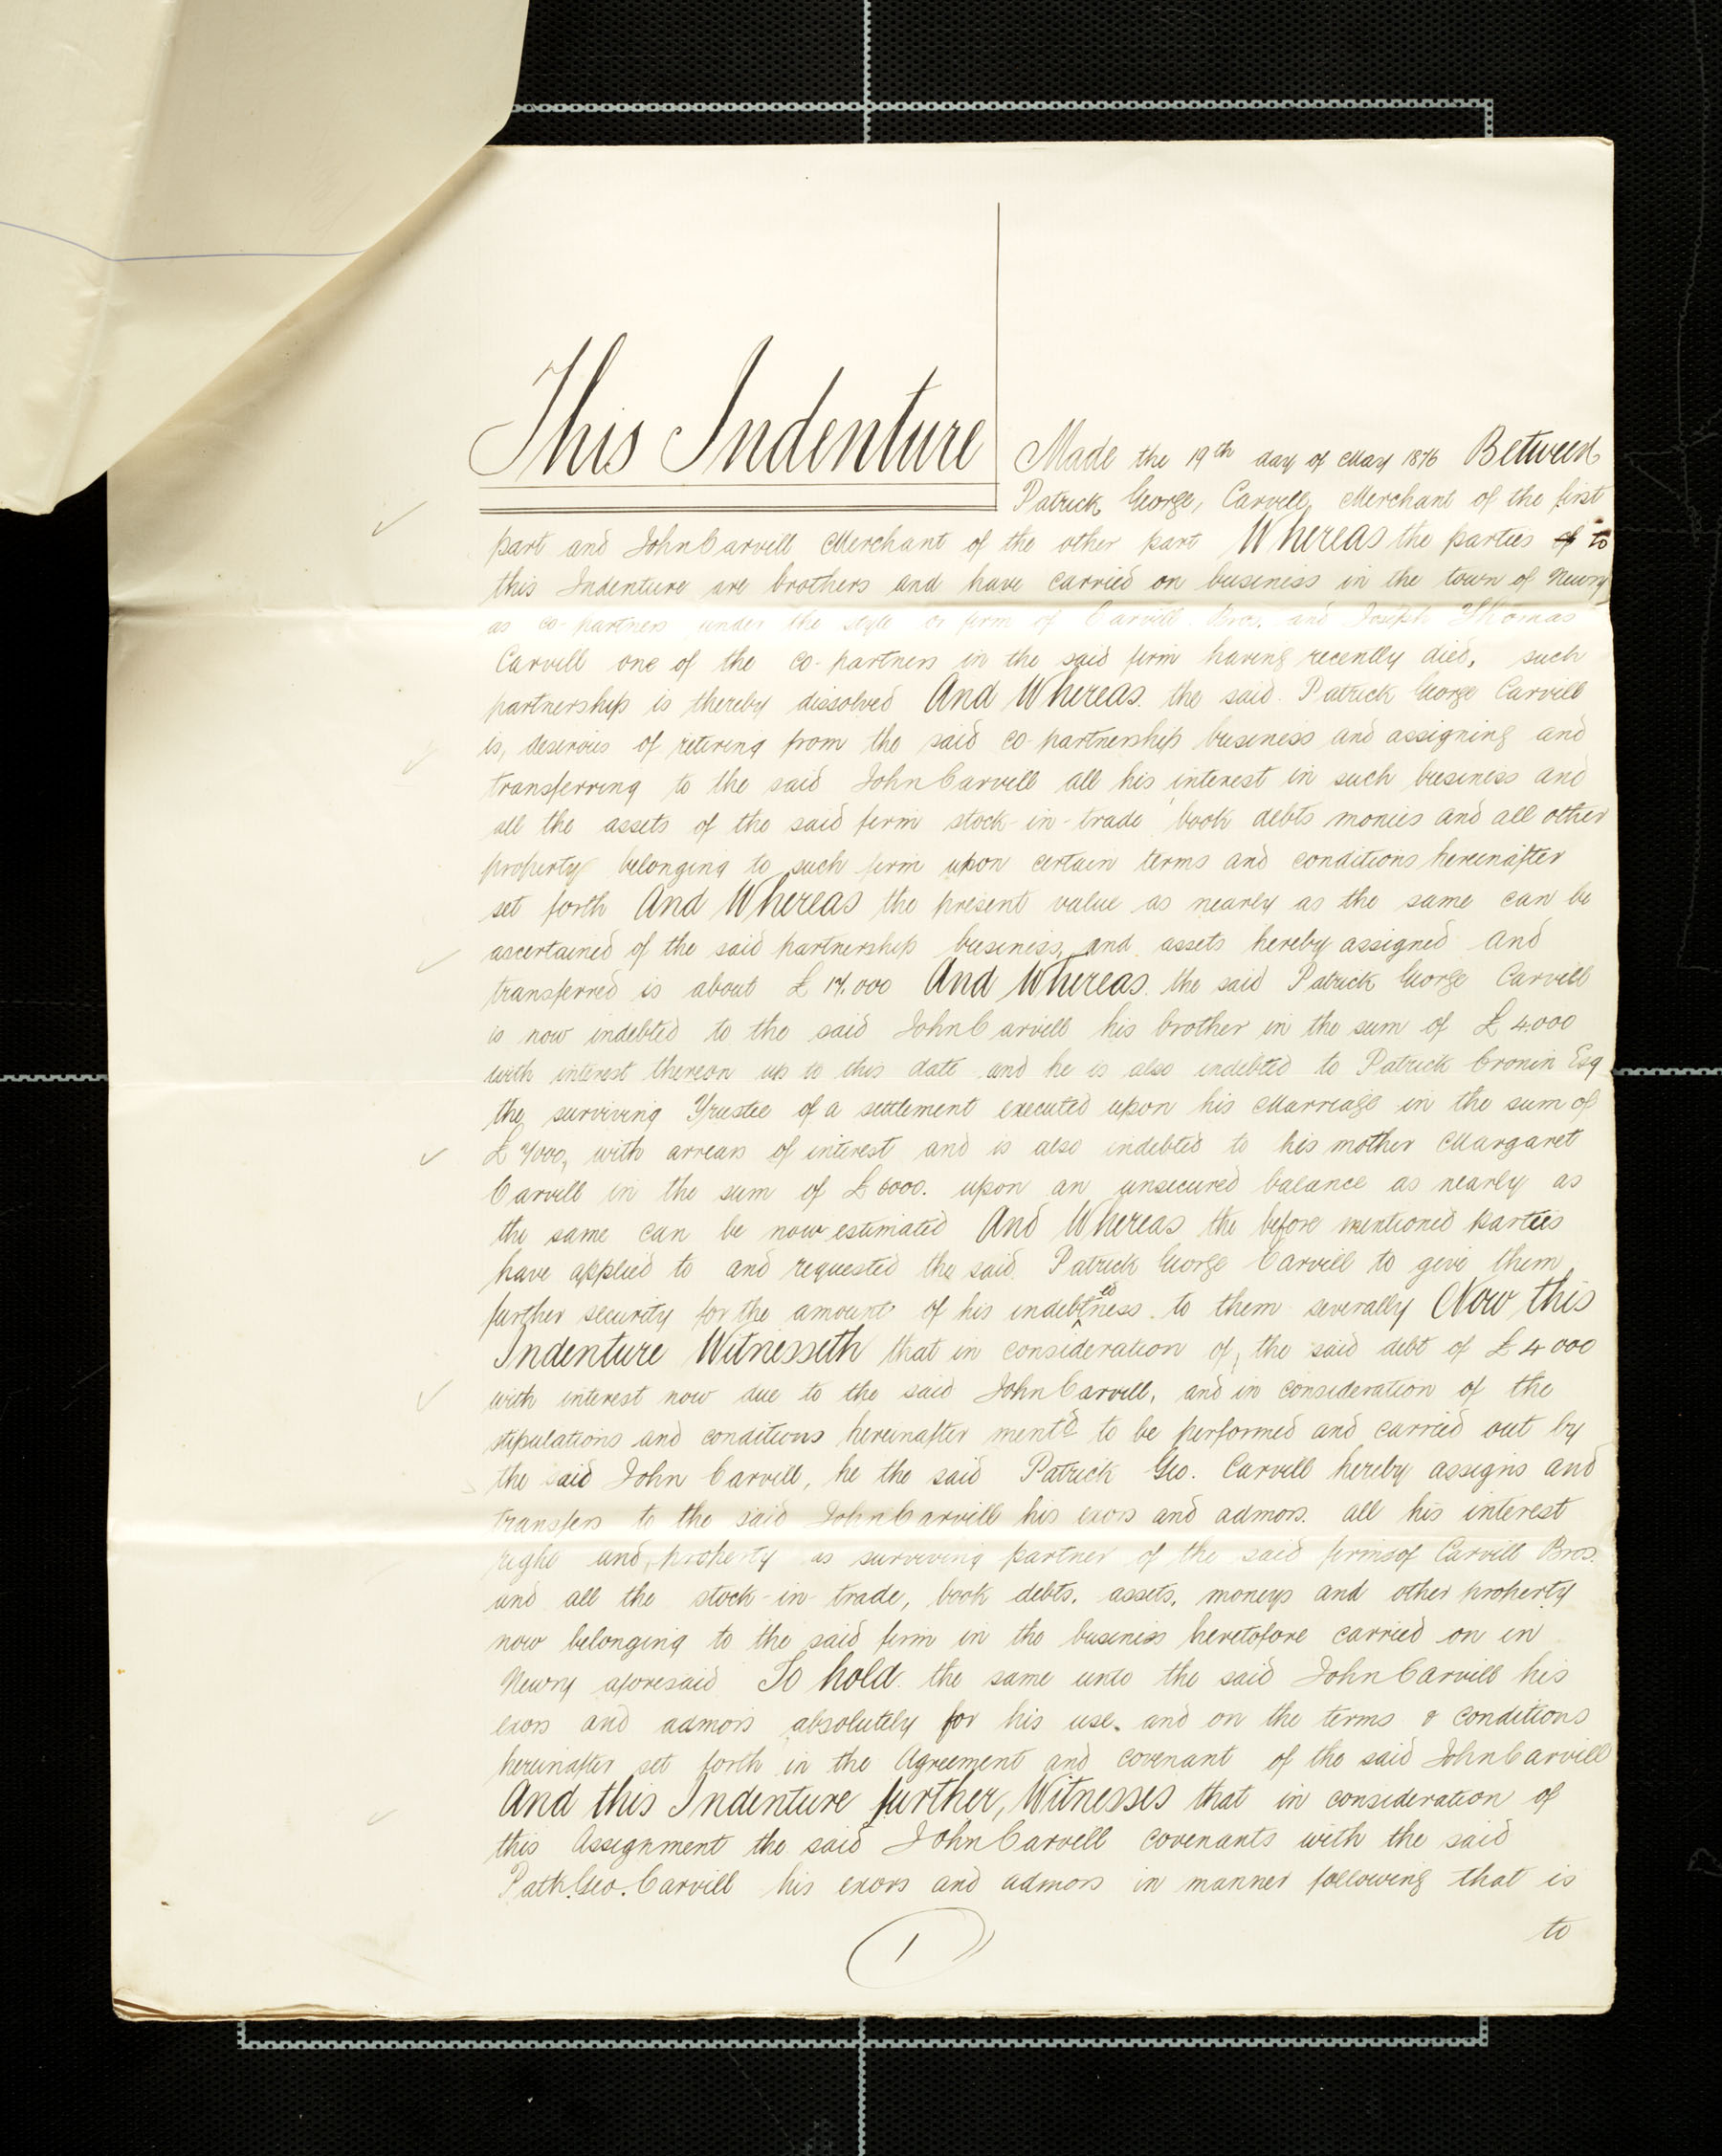 This Indenture Made the 19th day of May 1876 Between
Patrick George, Carvill, Merchant of the first
part and John Carvill Merchant of the other part Whereas the parties of to
this Indenture are brothers and have carried on business in the town of Newry
as co-partners under the style or firm of Carvill Bros. and Joseph Thomas
Carvill one of the co-partners in the said firm having recently died, such
partnership is thereby dissolved And Whereas the said Patrick George Carvill
is, desirous of retiring from the said co-partnership business and assigning and
transferring to the said John Carvill all his interest in such business and
all the assets of the said firm stock-in-trade book debts monies and all other
property belonging to such firm upon certain terms and conditions hereinafter
set forth And Whereas the present value as nearly as the same can be
ascertained of the said partnership business, and assets hereby assigned and
transferred is about £ And Whereas the said Patrick George Carvill
is now indebted to the said John Carvill his brother in the sum of £4.000
with interest thereon up to this date and he is also indebted to Patrick Cronin Esq
the surviving Trustee of a settlement executed upon his Marriage in the sum of
£ with arrears of interest and is also indebted to his mother Margaret
Carvill in the sum of £6000. upon an unsecured balance as nearly as
the same can be now estimated And Whereas the before mentioned parties
have applied to and requested the said Patrick George Carvill to give them
further security for the amount of his indebtedness to them severally Now this
Indenture Witnesseth that in consideration of, the said debt of £4000
with interest now due to the said John Carvill, and in consideration of the
stipulations and conditions hereinafter mentd to be performed and carried out by
the said John Carvill, he the said Patrick Geo. Carvill hereby assigns and
transfers to the said John Carvill his exors and admors. all his interest
right and, property as surviving partner of the said firm of Carvill Bros.
and all the stock-in-trade, book debts, assets, moneys and other property
now belonging to the said firm in the business heretofore carried on in
Newry aforesaid To hold the same unto the said John Carvill his
exors and admors absolutely for his use, and on the terms & conditions
hereinafter set forth in the Agreement and covenant of the said John Carvill
And this Indenture further, Witnesses that in consideration of
this Assignment the said John Carvill covenants with the said
Patk. Geo. Carvill his exors and admors in manner following that is
to
1